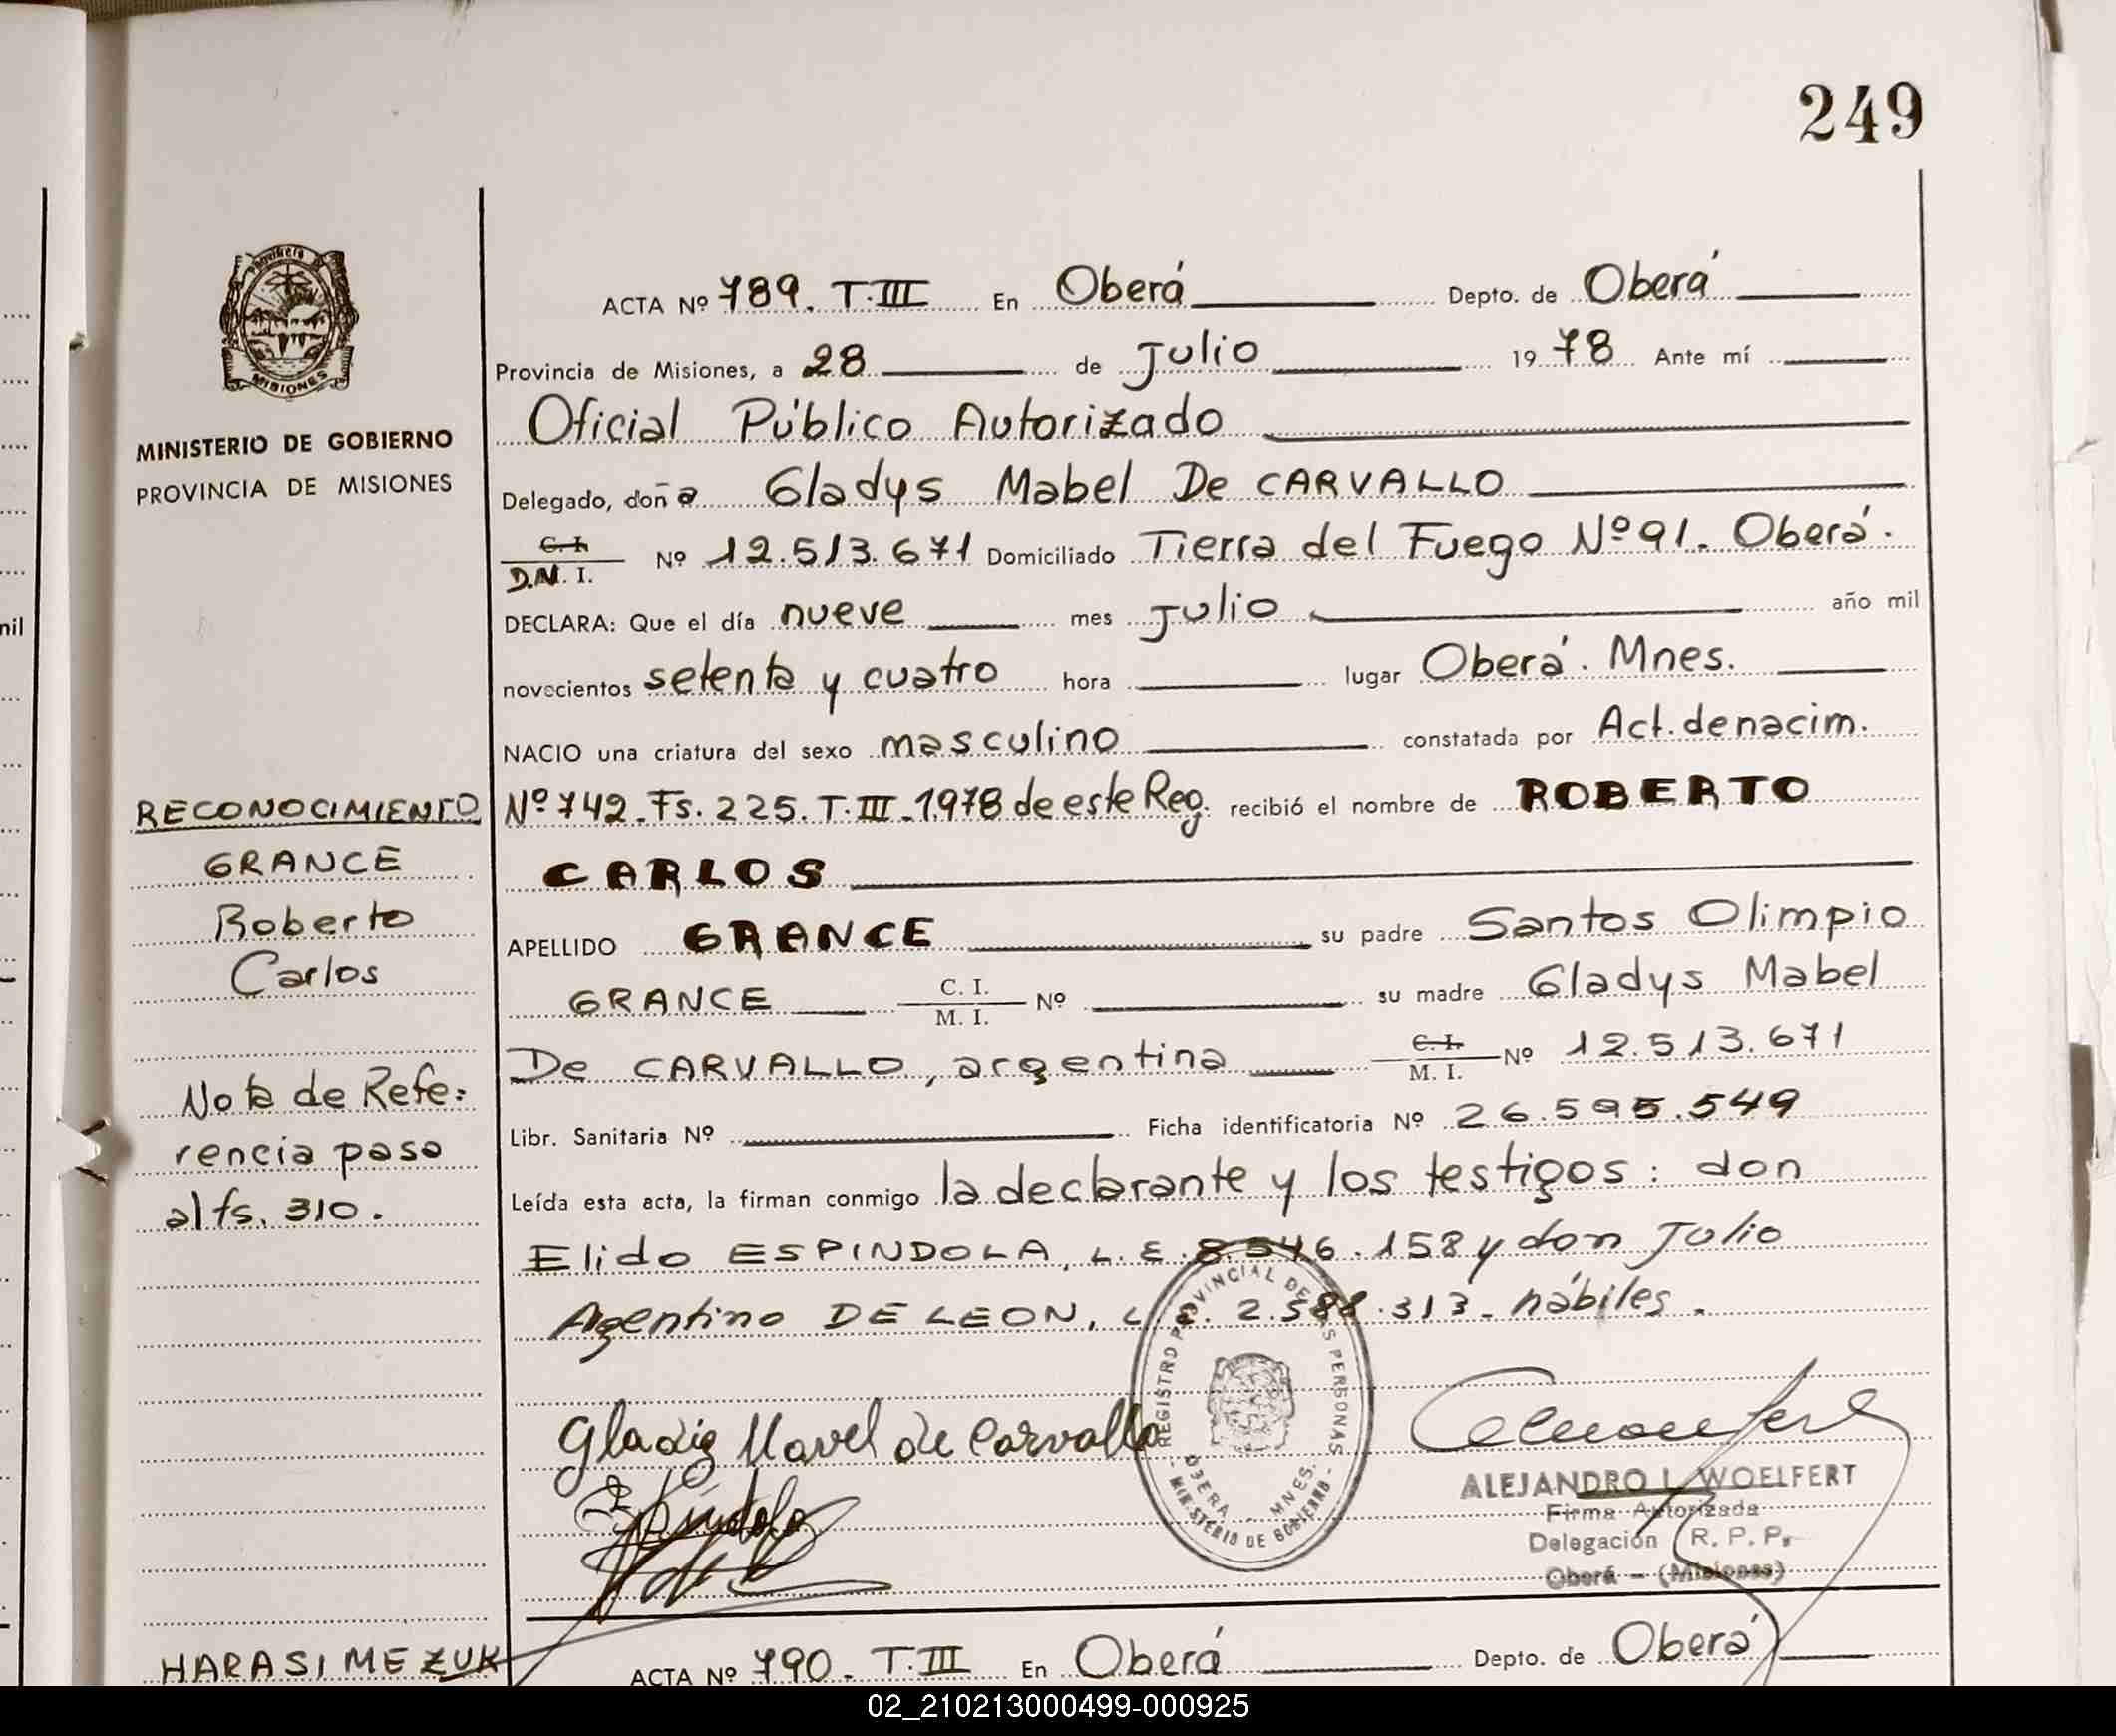 249
Provincia de
MISIONES
MINISTERIO DE GOBIERNO
PROVINCIA DE MISIONES
ACTA Nº 789. T.III En Oberá Depto. de Oberá
Provincia de Misiones, a 28 de Julio 1978 Ante mí
Oficial Público Autorizado
Delegado, doña Gladys Mabel De CARVALLO
C. I.
D.N. I. Nº 12.513.671 Domiciliado Tierra del Fuego Nº 91. Oberá.
DECLARA: Que el día nueve mes Julio año mil
novecientos setenta y cuatro hora lugar Oberá. Mnes.
NACIO una criatura del sexo masculino constatada por Act. de nacim.
Nº 742. Fs. 225. T.III. 1978 de este Reg. recibió el nombre de ROBERTO
CARLOS
APELLIDO GRANCE su padre Santos Olimpio
GRANCE C. I. M. I. Nº su madre Gladys Mabel
De CARVALLO, argentina C. I. M. I. Nº 12.513.671
Libr. Sanitaria Nº Ficha identificatoria Nº 26.595.549
Leída esta acta, la firman conmigo la declarante y los testigos: don
Elido ESPINDOLA, L.E. 8.546.158 y don Julio
Argentino DE LEON, L.E. 2.588.313. hábiles.
RECONOCIMIENTO
GRANCE
Roberto
Carlos
Nota de Refe-
rencia pasa
al fs. 310.
Gladiz Mavel de Carvallo
Espíndola
REGISTRO PROVINCIAL DE LAS PERSONAS
OBERA - MNES.
- MINISTERIO DE GOBIERNO -
ALEJANDRO L. WOELFERT
Firma Autorizada
Delegación R. P. P.
Oberá - (Misiones)
HARASIMEZUK
ACTA Nº 790. T.III En Oberá Depto. de Oberá
nil
02_210213000499-000925